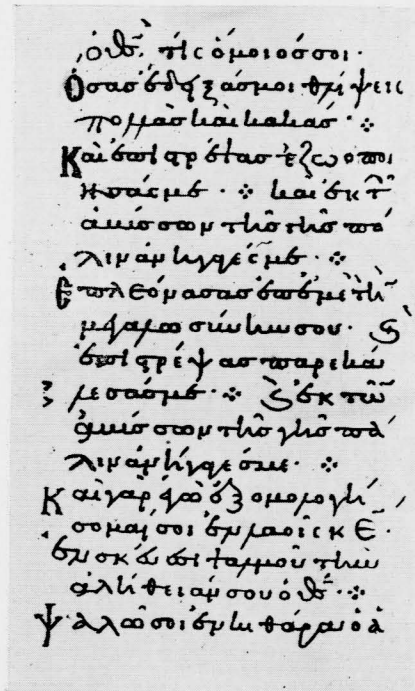 ὁ θς̅. τίς ὅμοιός σοι·
Ὅσας ἔδειξάς μοι θλίψεις
πολλὰς καὶ κακάς·
Καὶ ἐπιστρέψας ἐζωοποί
ησάς με· καὶ ἐκ τῶν
ἀβύσσων τῆς γῆς πά
λιν ἀνήγαγές με·
Ἐπλεόνασας ἐπ' ἐμὲ τὴν
μεγαλωσύνην σου· καὶ
ἐπιστρέψας παρεκά
λεσάς με· καὶ ἐκ τῶν
ἀβύσσων τῆς γῆς πά
λιν ἀνήγαγές με·
Καὶ γὰρ ἐγὼ ἐξομολογή
σομαί σοι ἐν λαοῖς κε̅·
ἐν σκεύει ψαλμοῦ τὴν
ἀλήθειάν σου ὁ θς̅·
Ψαλῶ σοι ἐν κιθάρα ὁ ἅ